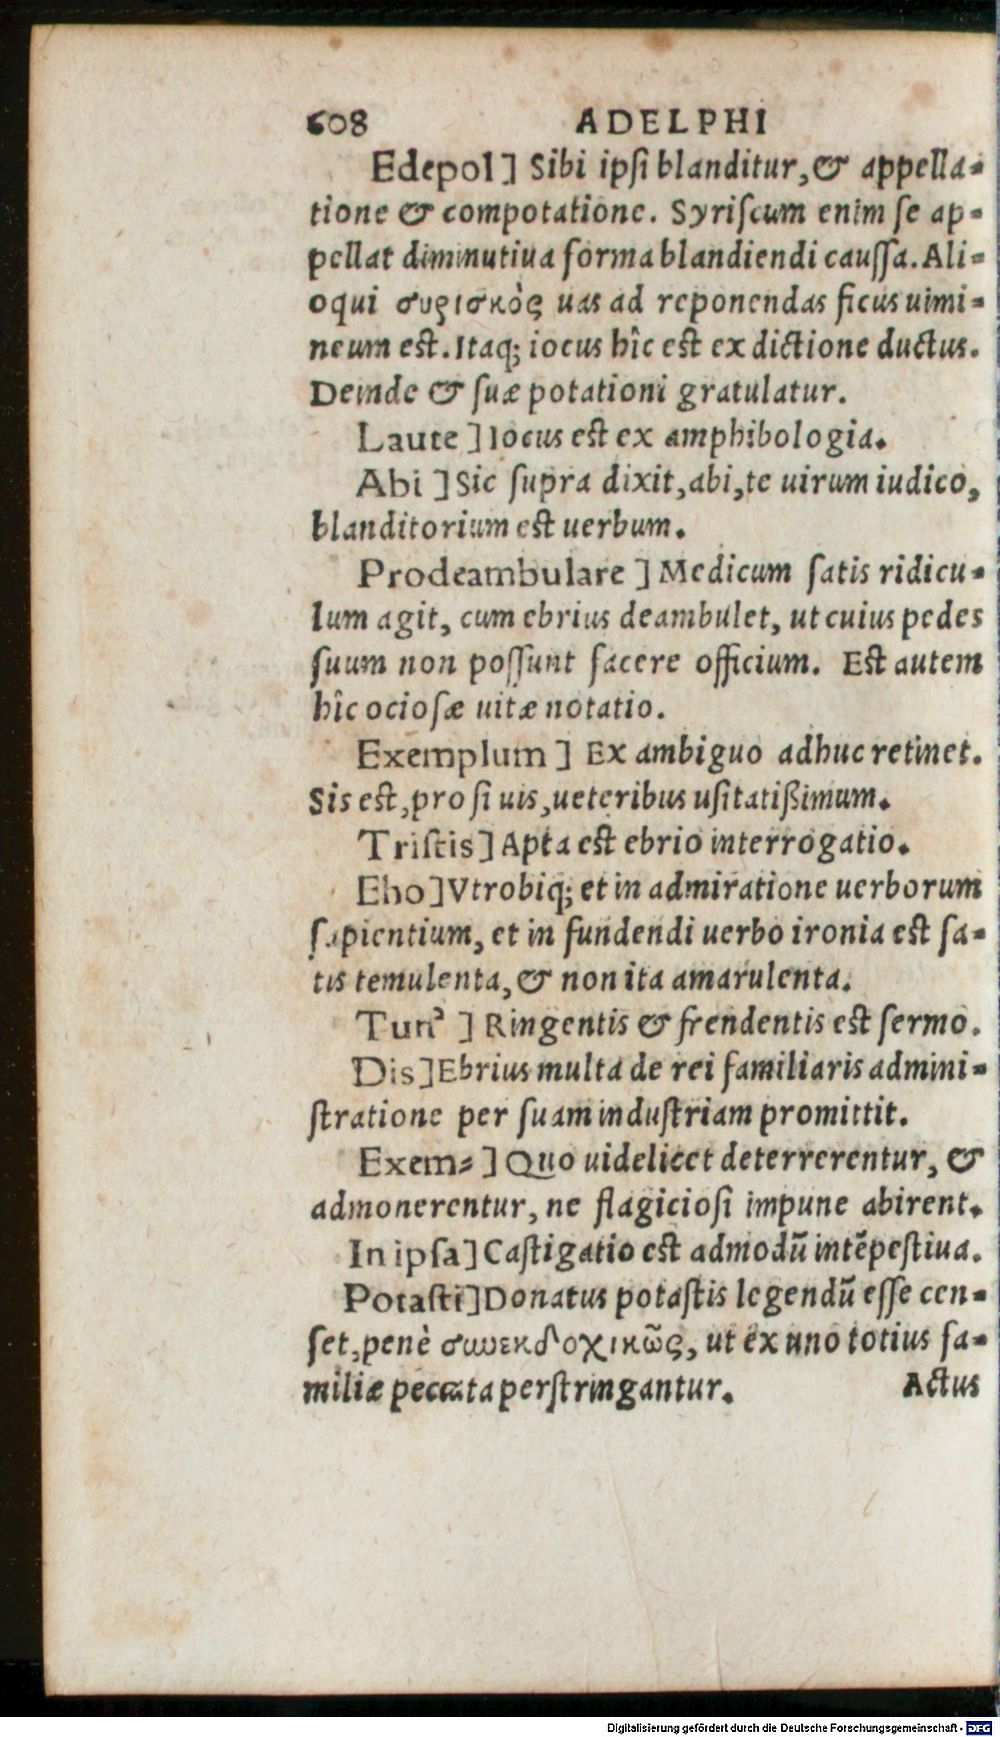 608 ADELPHI
Edepol] Sibi ipsi blanditur, & appella-
tione & compotatione. Syriscum enim se ap-
pellat diminutiua forma blandiendi caussa. Ali-
oqui συρισκὸς uas ad reponendas ficus uimi-
neum est. Itaq; iocus hîc est ex dictione ductus.
Deinde & suæ potationi gratulatur.
Laute] Iocus est ex amphibologia.
Abi] Sic supra dixit, abi, te uirum iudico,
blanditorium est uerbum.
Prodeambulare] Medicum satis ridicu-
lum agit, cum ebrius deambulet, ut cuius pedes
suum non possunt facere officium. Est autem
hîc ociosæ uitæ notatio.
Exemplum] Ex ambiguo adhuc retinet.
Sis est, pro si uis, ueteribus usitatißimum.
Tristis] Apta est ebrio interrogatio.
Eho] Vtrobiq; et in admiratione uerborum
sapientium, et in fundendi uerbo ironia est sa-
tis temulenta, & non ita amarulenta.
Tun' ] Ringentis & frendentis est sermo.
Dis] Ebrius multa de rei familiaris admini-
stratione per suam industriam promittit.
Exem-] Quo uidelicet deterrerentur, &
admonerentur, ne flagiciosi impune abirent.
In ipsa] Castigatio est admodū intēpestiua.
Potasti] Donatus potastis legendū esse cen-
set, penè συνεκδοχικῶς, ut ex uno totius fa-
miliæ peccata perstringantur. Actus
Digitalisierung gefördert durch die Deutsche Forschungsgemeinschaft - DFG